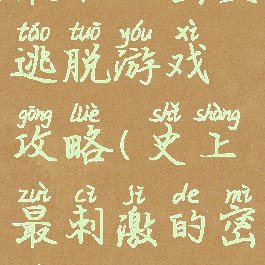 táo tuō yóu xì
逃脱游戏
gōng lüè shǐ shàng
攻略(史上
zuì cì jī de mì
最刺激的密